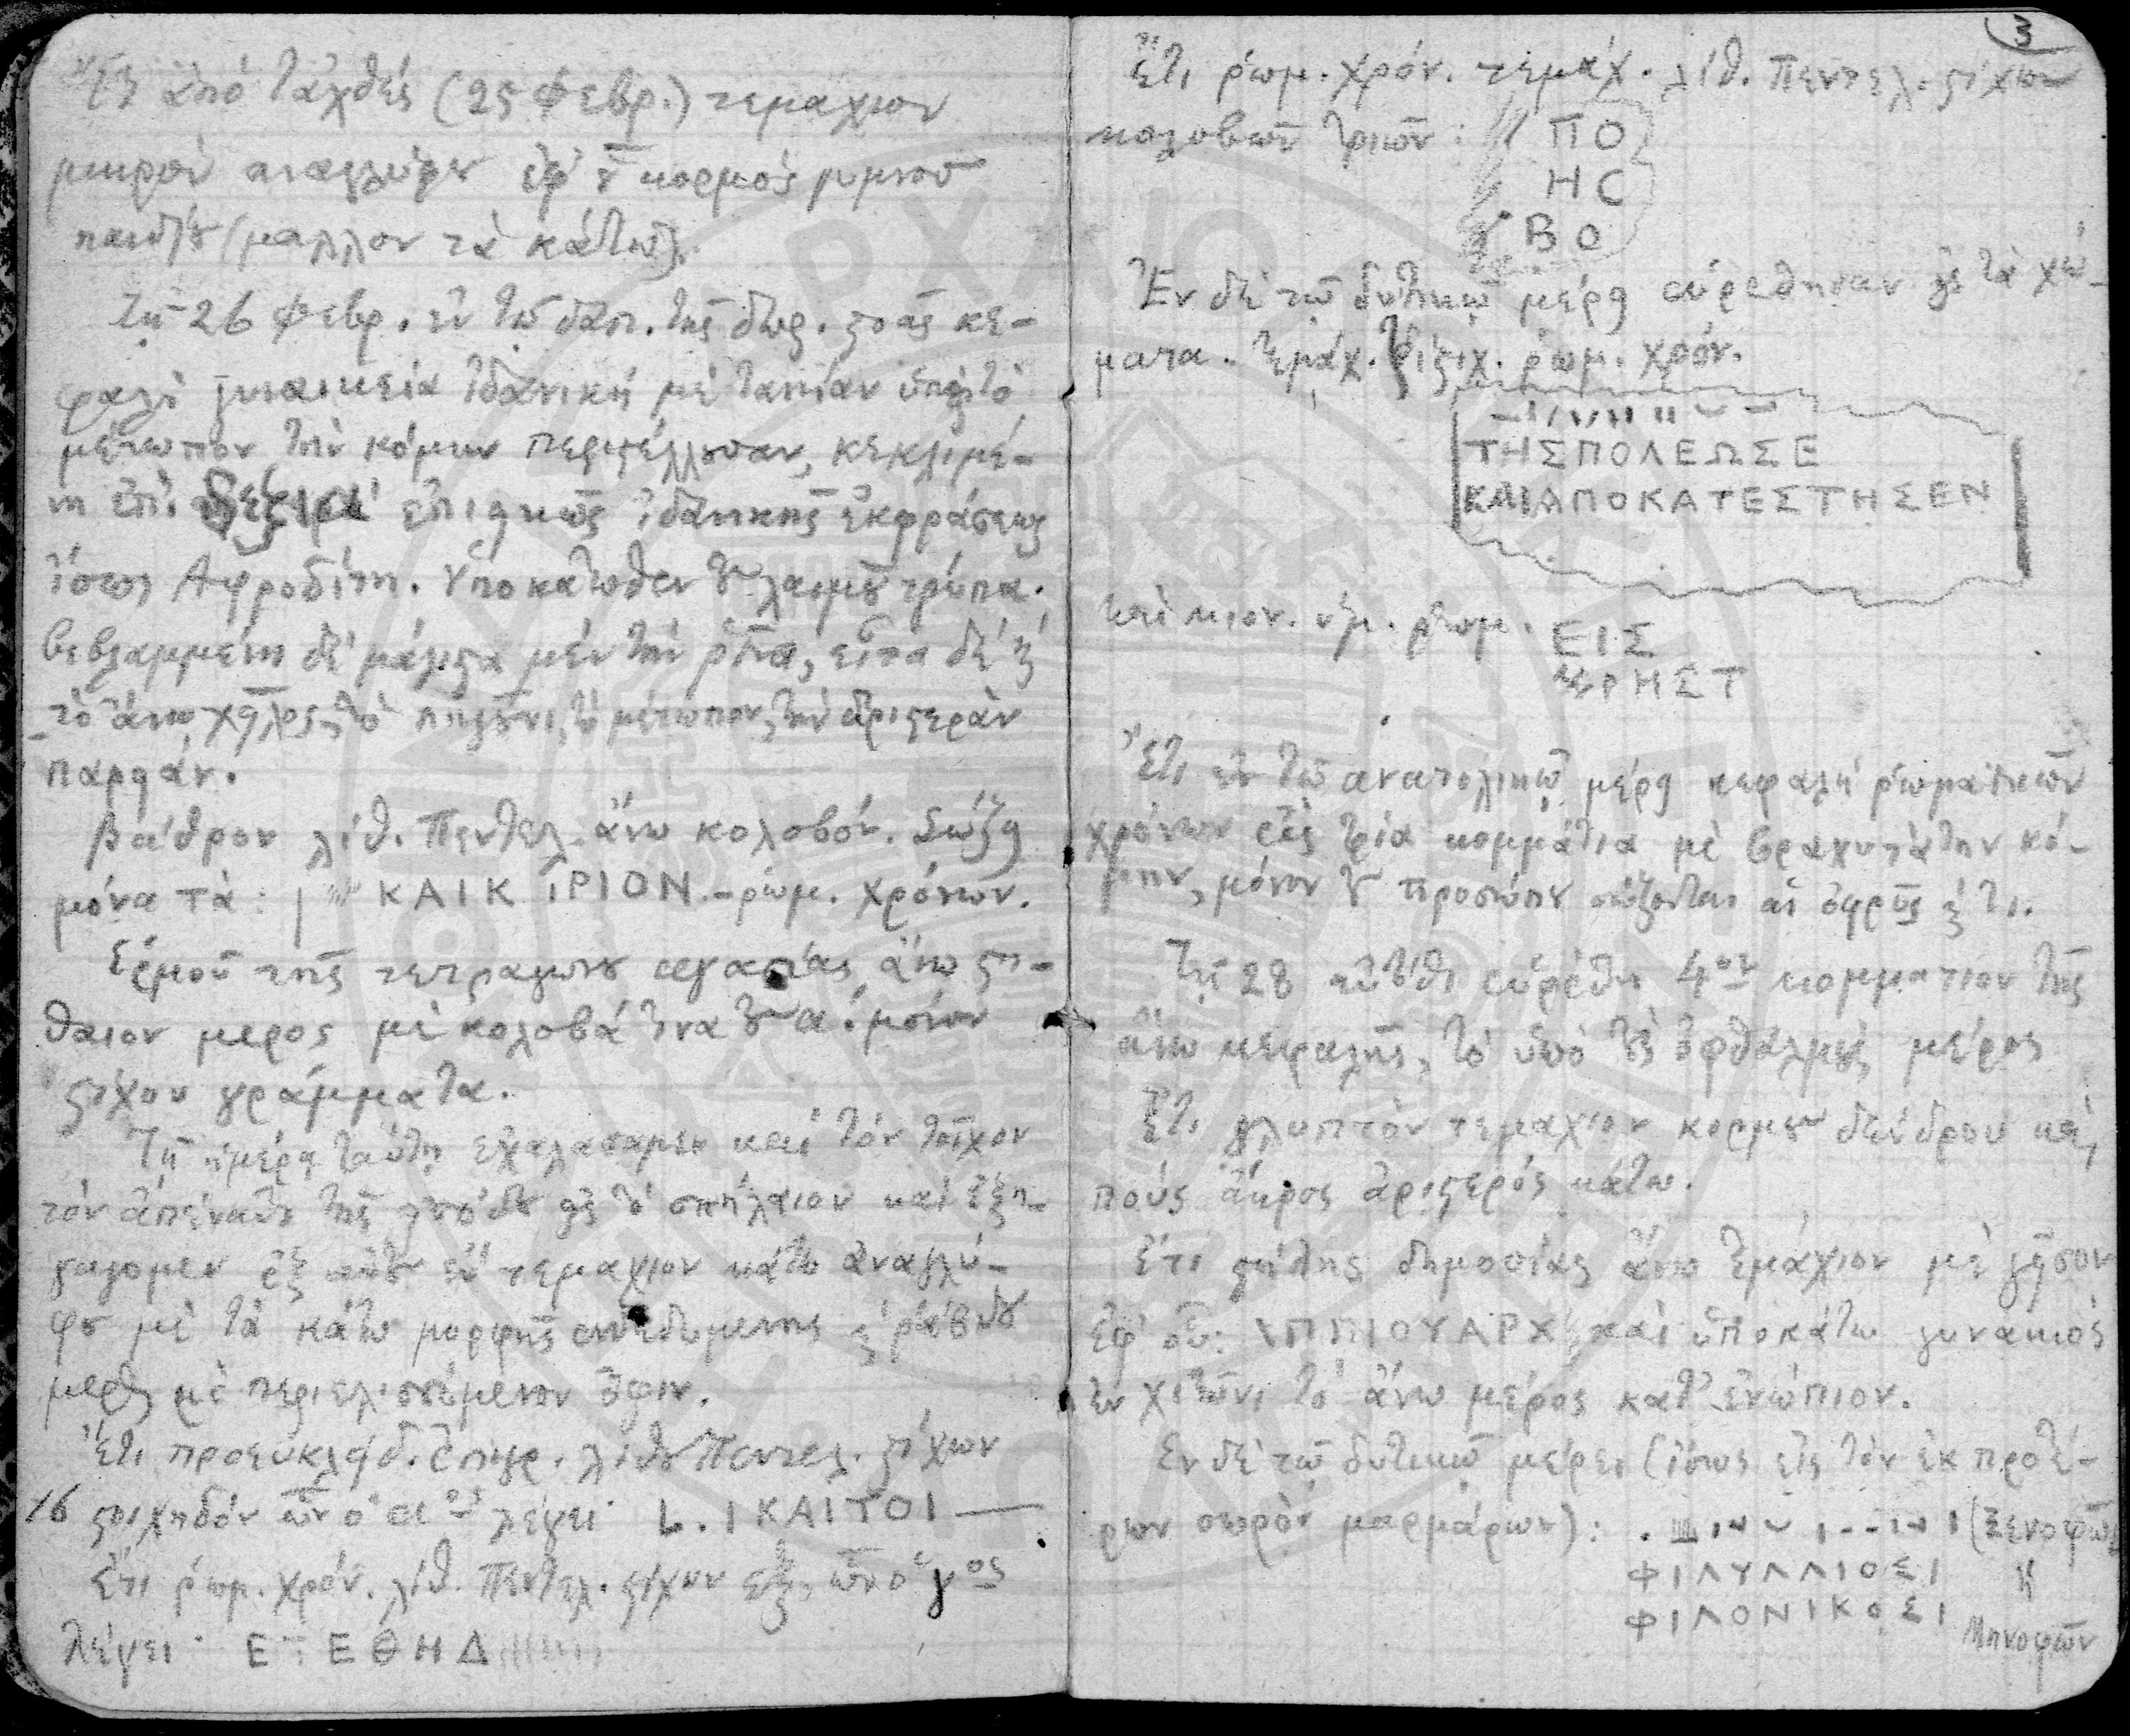 Ἔτι ἀπὸ τὰ χθές (25 Φεβρ.) τεμαχιον
μικρὸν αναγλύφου ἐφ' οὗ κορμὸς γυμνοῦ
παιδίου (μαλλον τὰ κάτω).
Τῇ 26 Φεβρ. ἐν τῷ δαπ. τῆς δωρ. στοᾶς κε-
φαλὴ γυναικεία ἰδανικὴ μὲ ταινίαν ὑπὲρ τὸ
μέτωπον τὴν κόμην περιστέλλουσαν, κεκλιμέ-
νη ἐπὶ δεξιὰ ἐπιεικῶς ἰδανικῆς ἐκφράσεως
ἴσως Αφροδίτη. Υποκάτωθεν τοῦ λαιμοῦ τρύπα.
βεβλαμμένη δὲ μάλιστα μὲν τὴν ῥῖνα, εἶτα δὲ καὶ
τὸ ἄνω χεῖλος, τὸ πηγοῦνι, τὸ μέτωπον, τὴν ἀριστερὰν
παρειάν.
Βάθρον λίθ. Πεντελ. ἄνω κολοβόν. Σώζει
μόνα τὰ: ΚΑΙΚ ΙΡΙΟΝ – ρωμ. χρόνων.
Ἑρμοῦ τῆς τετραγώνου εργασίας ἄνω στη-
θαιον μερος μὲ κολοβά τινα τοῦ α' μόνον
στίχου γράμματα.
Τῇ ἡμέρᾳ ταύτῃ εχαλασαμεν καὶ τὸν τοῖχον
τὸν ἀπέναντι τῆς εἰσόδου εἰς τὸ σπήλαιον καὶ ἐξη-
γάγομεν ἐξ αὐτοῦ ἓν τεμαχιον κάτω ἀναγλύ-
φου μὲ τὰ κάτω μορφῆς ενδεδυμενης καὶ ῥάβδου
μὲ περιελισσόμενον ὄφιν.
Ἔτι προευκλείδ. ἐπιγρ. λίθου Πεντελ. στίχων
16 στοιχηδόν ὧν ὁ αος λέγει L. Ι ΚΑΙΤΟΙ —
Ἔτι ρωμ. χρόν. λίθ. Πεντελ. στίχων ἕξ, ὧν ὁ γος
λέγει ΕΤΕΘΗΔ
3
Ἔτι ρωμ. χρόν. τεμάχ. λίθ. Πεντελ. στίχων
κολοβῶν τριῶν: ΠΟ
ΗС
ΒΟ
Ἐν δὲ τῷ δυτικῷ μέρει εὑρέθησαν εἰς τὰ χώ-
ματα. τεμάχ. τρίστιχ. ρωμ. χρόν.
ΤΗΣΠΟΛΕΩΣΕ
ΚΑΙΑΠΟΚΑΤΕΣΤΗΣΕΝ
ἐπὶ κιον. ρωμ. ΕΙΣ
ΧΡΗΣΤ
Ἔτι ἐν τῷ ανατολικῷ μέρει κεφαλή ρωμαϊκῶν
χρόνων εἰς τρία κομμάτια μὲ βραχυτάτην κό-
μην, μόνον τοῦ προσώπου σώζονται αἱ ὀφρῦς καὶ τι.
Τῇ 28 αὐτόθι εὑρέθη 4ον κομματιον τῆς
ἄνω κεφαλῆς, τὸ ὑπὸ τοὺς ὀφθαλμούς μέρος
Ἔτι γλυπτὸν τεμαχιον κορμοῦ δένδρου καὶ
πούς ἄκρος ἀριστερός κάτω.
Ἔτι στήλης δημοσίας ἄνω τεμάχιον μὲ γεῖσον
ἐφ' οὗ: ΙΠΠΙΟΥΑΡΧ καὶ ὑποκάτω γυναικὸς
ἐν χιτῶνι τὸ ἄνω μέρος κατ' ἐνώπιον.
Ἐν δὲ τῷ δυτικῷ μέρει (ἴσως εἰς τὸν ἐκ προτέ-
ρων σωρὸν μαρμάρων): (Ξενοφῶν
ΦΙΛΥΛΛΙΟΣΙ ἢ
ΦΙΛΟΝΙΚΟΣΙ Μηνοφῶν